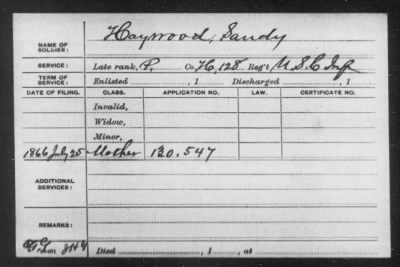 NAME OF SOLDIER: Haywood, Sandy
SERVICE: Late rank, P, Co. H, 128 Reg't U.S.C. Inf
TERM OF SERVICE: Enlisted , 1 Discharged , 1
DATE OF FILING. CLASS. APPLICATION NO. LAW. CERTIFICATE NO.
Invalid,
Widow,
Minor,
1866 July 25 Mother 130.547
ADDITIONAL SERVICES:
REMARKS:
Died , 1 , at